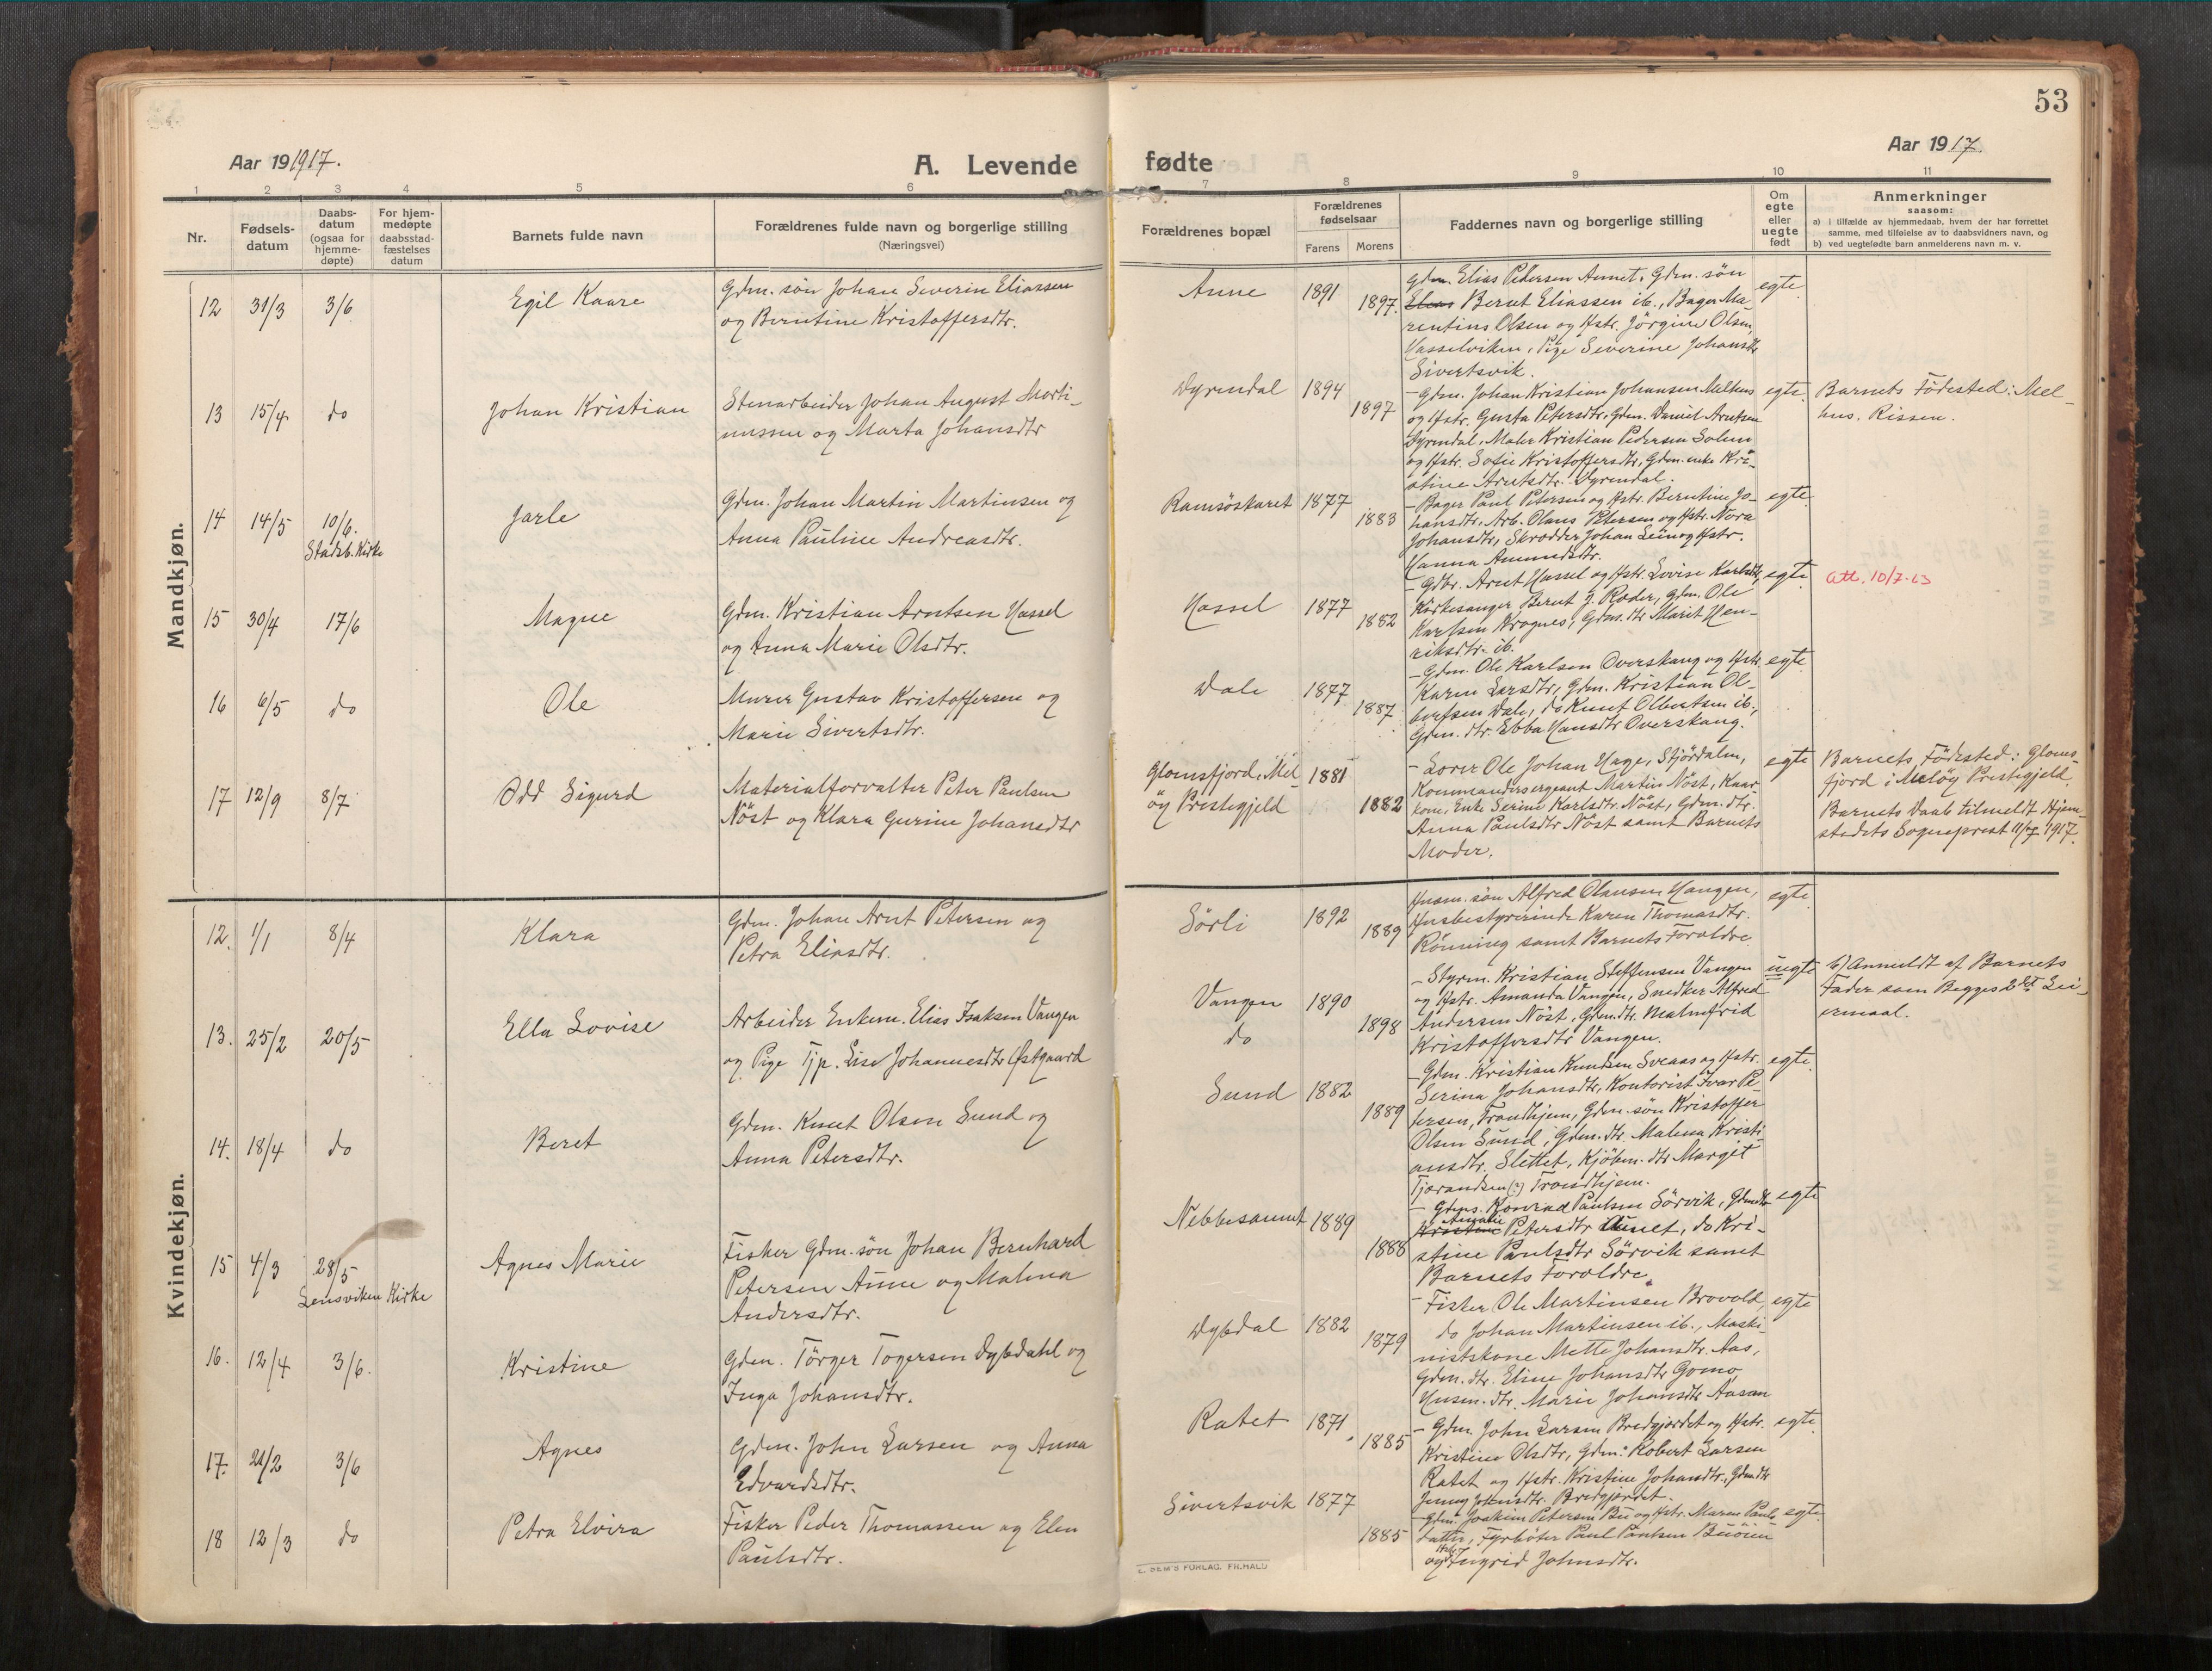 53
Aar 191917.
A. Levende
fødte
Aar 1917.
1 2 3 4 5 6
7 8 9 10 11
Nr.
Fødsels-
datum
Daabs-
datum
(ogsaa for
hjemme-
døpte)
For hjem-
medøpte
daabsstad-
fæstelses
datum
Barnets fulde navn
Forældrenes fulde navn og borgerlige stilling
(Næringsvei)
Forældrenes bopæl
Forældrenes
fødselsaar
Farens Morens
Faddernes navn og borgerlige stilling
Om
egte
eller
uegte
født
Anmerkninger
saasom:
a) i tilfælde av hjemmedaab, hvem der har forrettet
samme, med tilføielse av to daabsvidners navn, og
b) ved uegtefødte barn anmelderens navn m. v.
Mandkjøn.
12 31/3 3/6 Egil Kaare
Gdm. søn Johan Severin Eliassen
og Berntine Kristoffersdtr.
Aune 1891 1897.
Gdm. Elias Pedersen Aunet, Gdm. søn
Elias Bernt Eliassen ib., Bager Ma-
rentius Olsen og Hstr. Jörgine Olsen,
Hasselviken, Pige Severine Johansdtr
Sivertsvik.
egte
13 15/4 do Johan Kristian
Stenarbeider Johan August Marti-
nussen og Marta Johansdtr
Dyrendal 1894 1897
- Gdm. Johan Kristian Johansen Melhus
og Hstr. Gusta Petersdtr, Gdm. Daniel Arntsen
Dyrendal, Maler Kristian Pedersen Solem
og Hstr. Sofie Kristoffersdtr, Gdm. enke Kri-
stine Arntsdtr. Dyrendal.
egte.
Barnets Födested: Mel-
hus. Rissen.
14 14/5 10/6.
Stadsb. Kirke
Jarle
Gdm. Johan Martin Martinsen og
Anna Pauline Andreasdtr.
Ramsöskaret 1877 1883
- Bager Paul Petersen og Hstr. Berntine Jo-
hansdtr, Arb. Olaus Petersen og Hstr. Nora
Johansdtr, Skrædder Johan Lein og Hstr.
Hanna Amundsdtr.
egte
15 30/4 17/6 Magne
Gdm. Kristian Arntsen Hassel
og Anna Marie Olsdtr.
Hassel 1877 1882
- Gdbr. Arnt Hassel og Hstr. Lovise Karlsdtr,
Kirkesanger Bernt J. Röder, Gdm. Ole
Karlsen Krognes, Gdm. dtr Marit Hen-
riksdtr. ib.
egte
Att. 10/7-63
16 6/5 do Ole
Murer Gustav Kristoffersen og
Marie Sivertsdtr.
Dale 1877 1887.
- Gdm. Ole Karlsen Overskaug og Hstr.
Karen Larsdtr, Gdm. Kristian Ol-
bertsen Dale, do Knut Olbertsen ib.,
Gdm. dtr. Ebba Hansdtr Overskaug.
egte
17 12/9 8/7 Odd Sigurd
Materialforvalter Peter Paulsen
Nöst og Klara Gurine Johansdtr
Glomsfjord, Mel-
öy Prestegjeld
1881 1882
- Lærer Ole Johan Hage, Stjördalen,
Kommandersergeant Martin Nöst,
Enke Serine Karlsdtr. Nöst, Gdm. dtr.
Anna Paulsdtr Nöst samt Barnets
Moder.
egte
Barnets Födested: Gloms-
fjord i Melöy Prestegjeld
Barnets Daab tilmeldt Hjem-
stedets Sogneprest 11/7 1917.
Kvindekjøn.
12. 1/1 8/4 Klara
Gdm. Johan Arnt Petersen og
Petra Eliasdtr.
Sörli 1892 1889
Husm. søn Alfred Olausen Haugen,
Husbestyrerinde Karen Thomasdtr.
Rönning samt Barnets Foreldre.
egte
13. 25/2 20/5 Ella Lovise
Arbeider Enkem. Elias Isaksen Vangen
og Pige Tjp. Lise Johannesdtr Østgaard
Vangen
do
1890 1898
- Styrm. Kristian Steffensen Vangen
og Hstr. Amanda Vangen, Snedker Alfred
Andersen Nöst, Gdm. dtr. Malmfrid
Kristoffersdtr Vangen.
uegte
b) Anmeldt af Barnets
Fader som Begges 2det Lei-
ermaal.
14. 18/4 do Beret
Gdm. Knut Olsen Sund og
Anna Petersdtr.
Sund 1882 1889
- Gdm. Kristian Knudsen Sveaas og Hstr.
Serina Johansdtr, Kontorist Ivar Pe-
tersen, Trondhjem, Gdm. søn Kristoffer
Olsen Sund, Gdm. dtr. Malena Kristi-
ansdtr. Slettet, Kjöbm. dtr Margit
Tjærandsen (?) Trondhjem.
egte
15 4/3 28/5
Lensviken Kirke
Agnes Marie
Fisker Gdm. søn Johan Bernhard
Petersen Aune og Malena
Andersdtr.
Nebbesaunet 1889 1888
- Gdms. Konrad Paulsen Sörvik, Gdmdtr
Amalie
Kristine Petersdtr Aunet, do Kri-
stine Paulsdtr Sörvik samt
Barnets Foreldre.
egte
16. 12/4 3/6. Kristine
Gdm. Törger Togersen Dybdahl og
Inga Johansdtr.
Dybdal 1882 1879
- Fisker Ole Martinsen Brovold,
do Johan Martinsen ib., Maski-
nistskone Mette Johansdtr. Aas,
Gdm. dtr. Eline Johansdtr Gomo,
Husm. dtr. Marie Johansdtr Aasan
egte
17. 21/2 3/6 Agnes
Gdm. John Larsen og Anna
Edvardsdtr.
Ratet 1871 1885
- Gdm. John Larsen Bredgjerdet og Hstr.
Kristine Olsdtr, Gdm. Robert Larsen
Ratet og Hstr. Kristine Johansdtr, Gdmdtr
Jenny Johnsdtr. Bredgjerdet.
egte
18 12/3 do Petra Elvira
Fisker Peder Thomassen og Elen
Paulsdtr.
Sivertsvik 1877 1885
- Gdm. Joakim Petersen Bu og Hstr. Maren Pauls-
datter, Fyrböter Paul Paulsen Buöien
og Hstr. Ingrid Johnsdtr.
egte
E. SEM'S FORLAG, FR.HALD